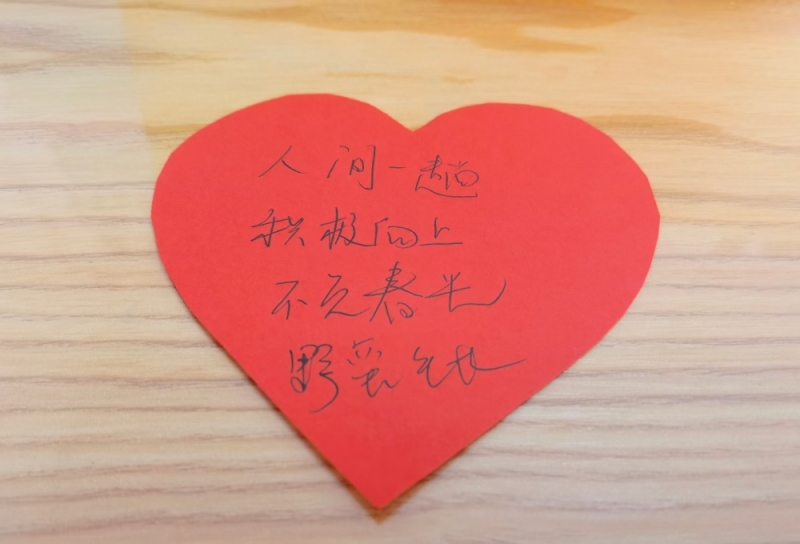 人间一趟
积极向上
不负春光
野蛮生长